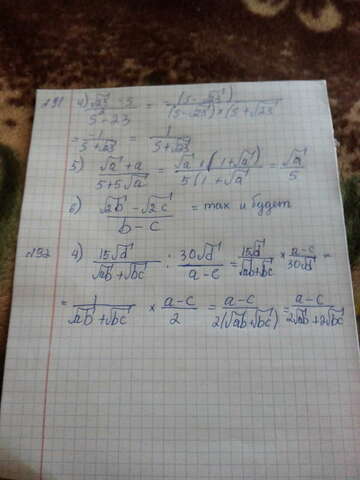 №91 4) (√23 - 5)/(5² - 23) = -(5 - √23)/((5 - √23) × (5 + √23))
= -1/(5 + √23) = 1/(5 + √23)
5) (√a + a)/(5 + 5√a) = √a × (1 + √a)/5(1 + √a) = √a/5
6) (√2b - √2c)/(b - c) = так и будет
№92 4) 15√d/(√ab + √bc) : 30√d/(a - c) = 15√d/(√ab + √bc) × (a - c)/30√d =
= 1/(√ab + √bc) × (a - c)/2 = (a - c)/2(√ab + √bc) = (a - c)/(2√ab + 2√bc)